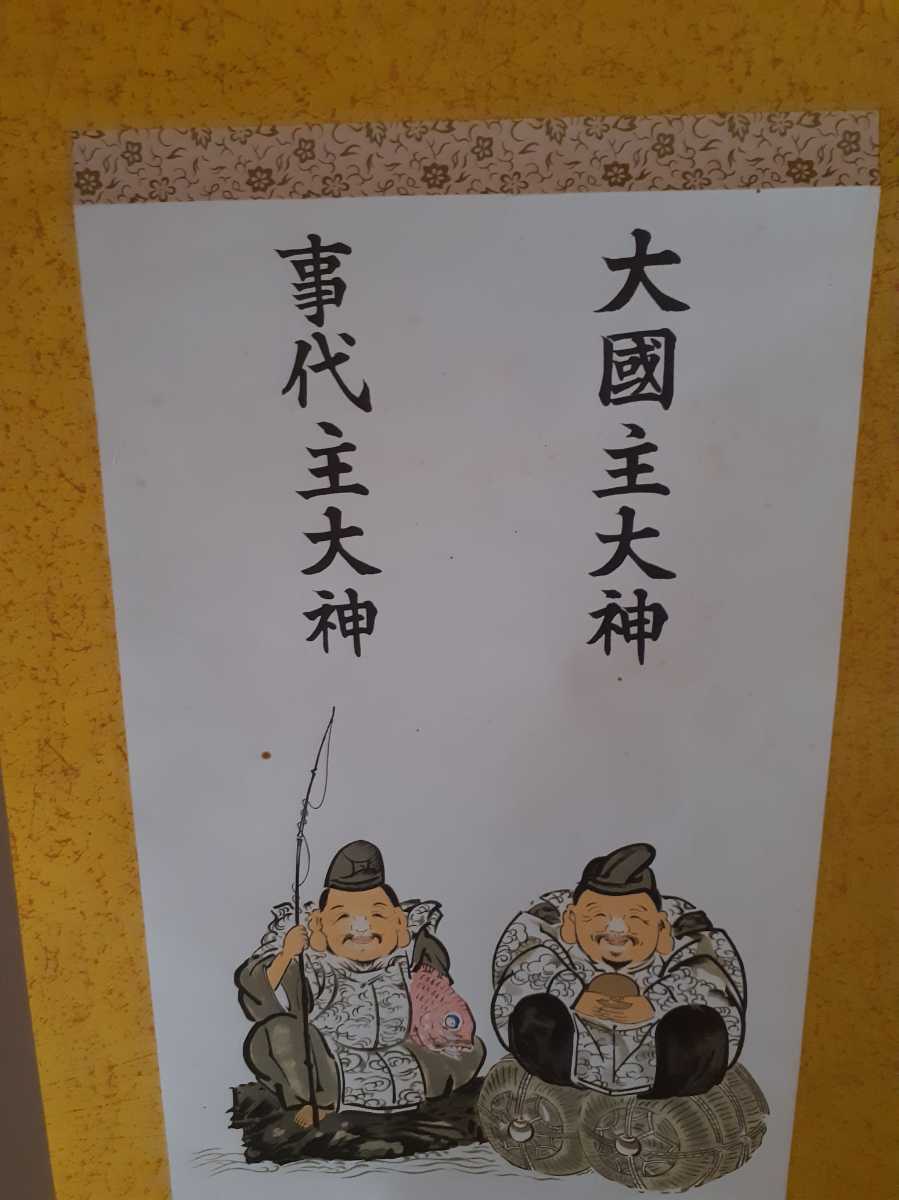 大國主大神
事代主大神